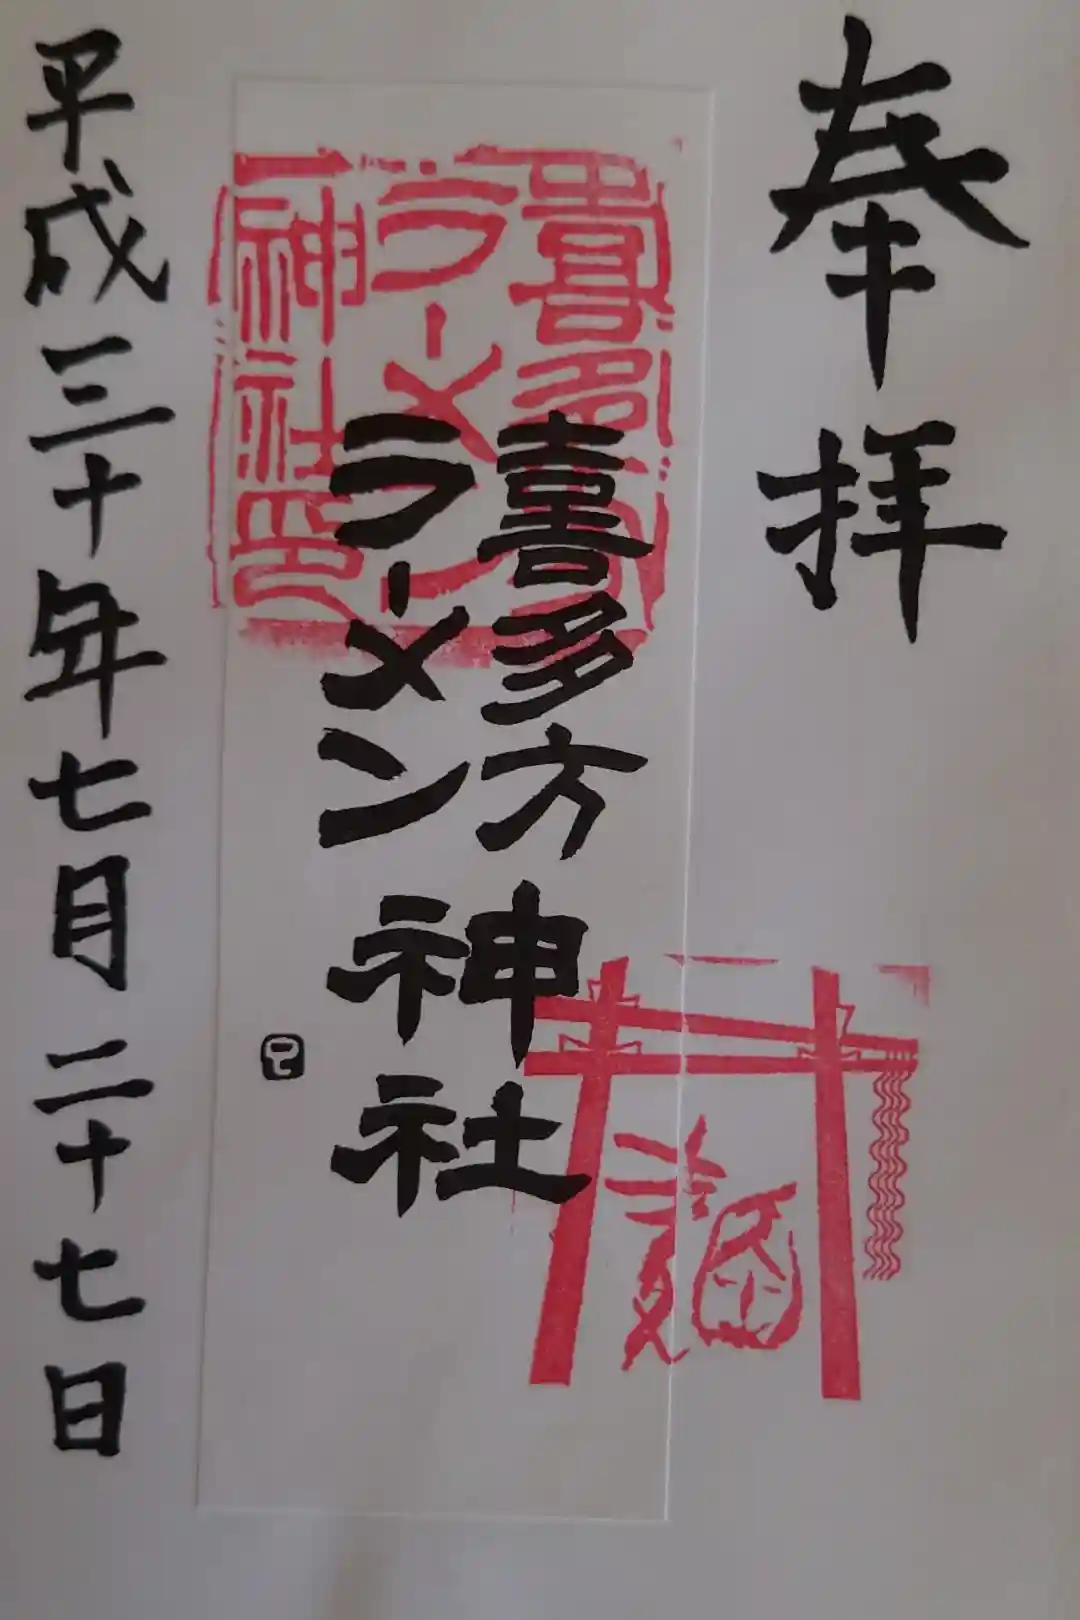 奉拝
喜多方
ラーメン
神社
喜多方
ラーメン
神社印
麺
平成三十年七月二十七日